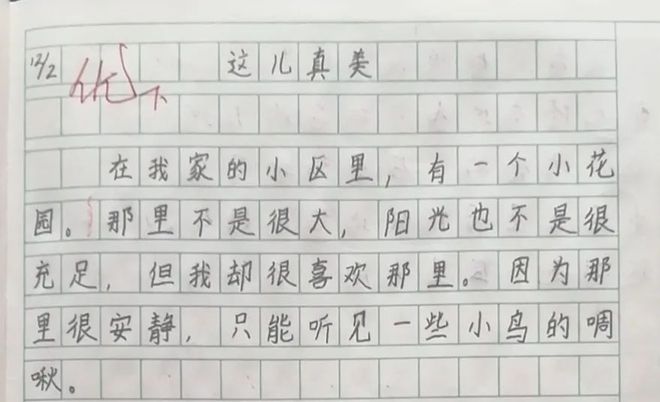 12/2 优下 这儿真美
在我家的小区里，有一个小花
园。那里不是很大，阳光也不是很
充足，但我却很喜欢那里。因为那
里很安静，只能听见一些小鸟的啁
啾。